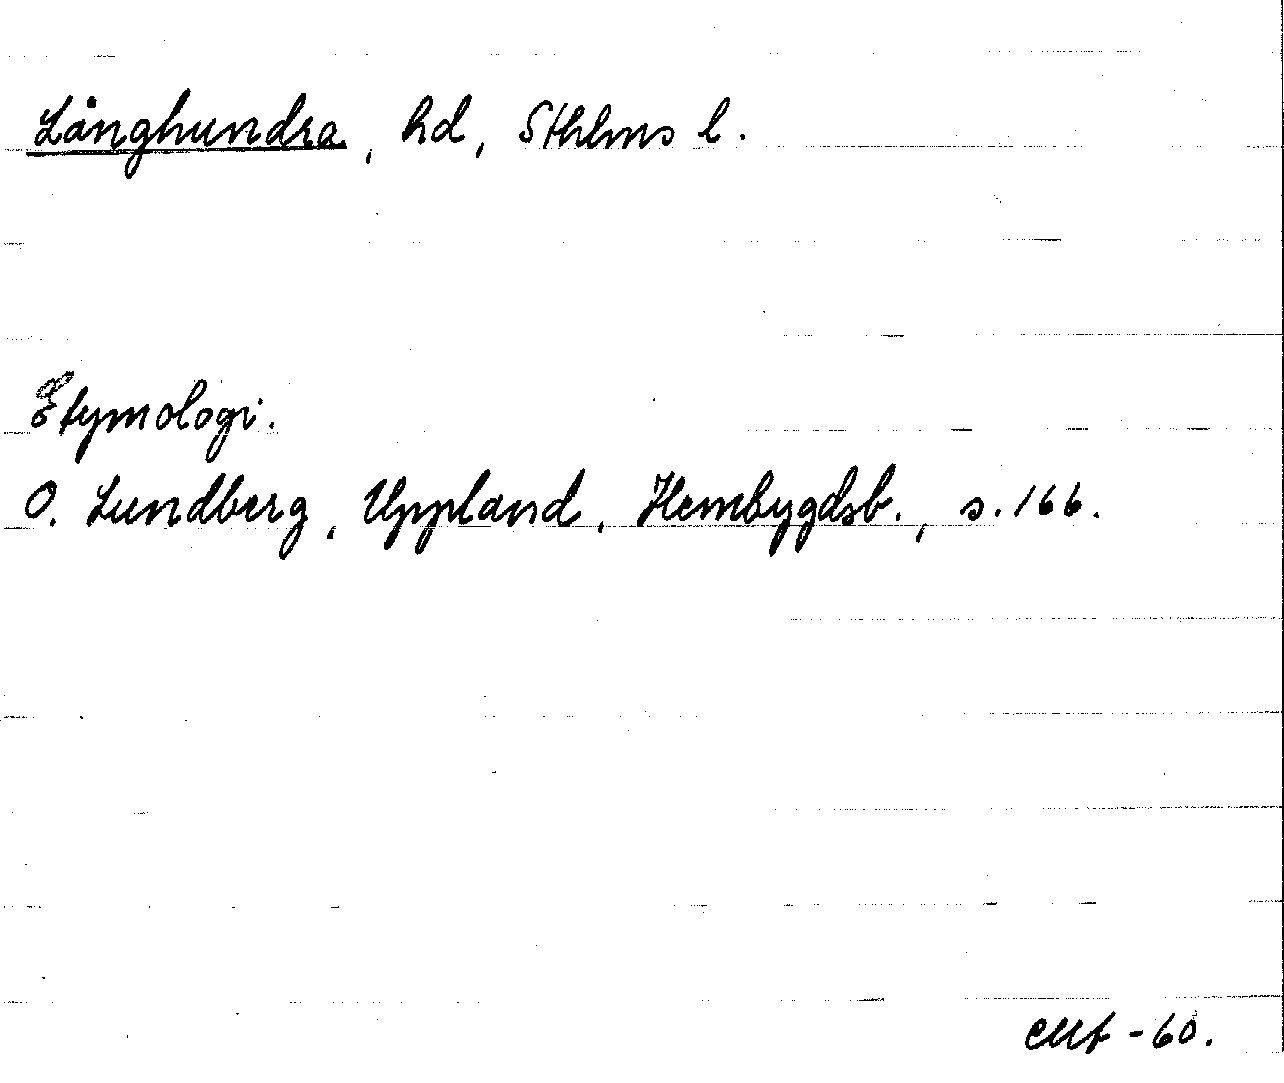 Långhundra, hd, Sthlms l.
Etymologi.
O. Lundberg, Uppland, Hembygdsb., s. 166.
-60.